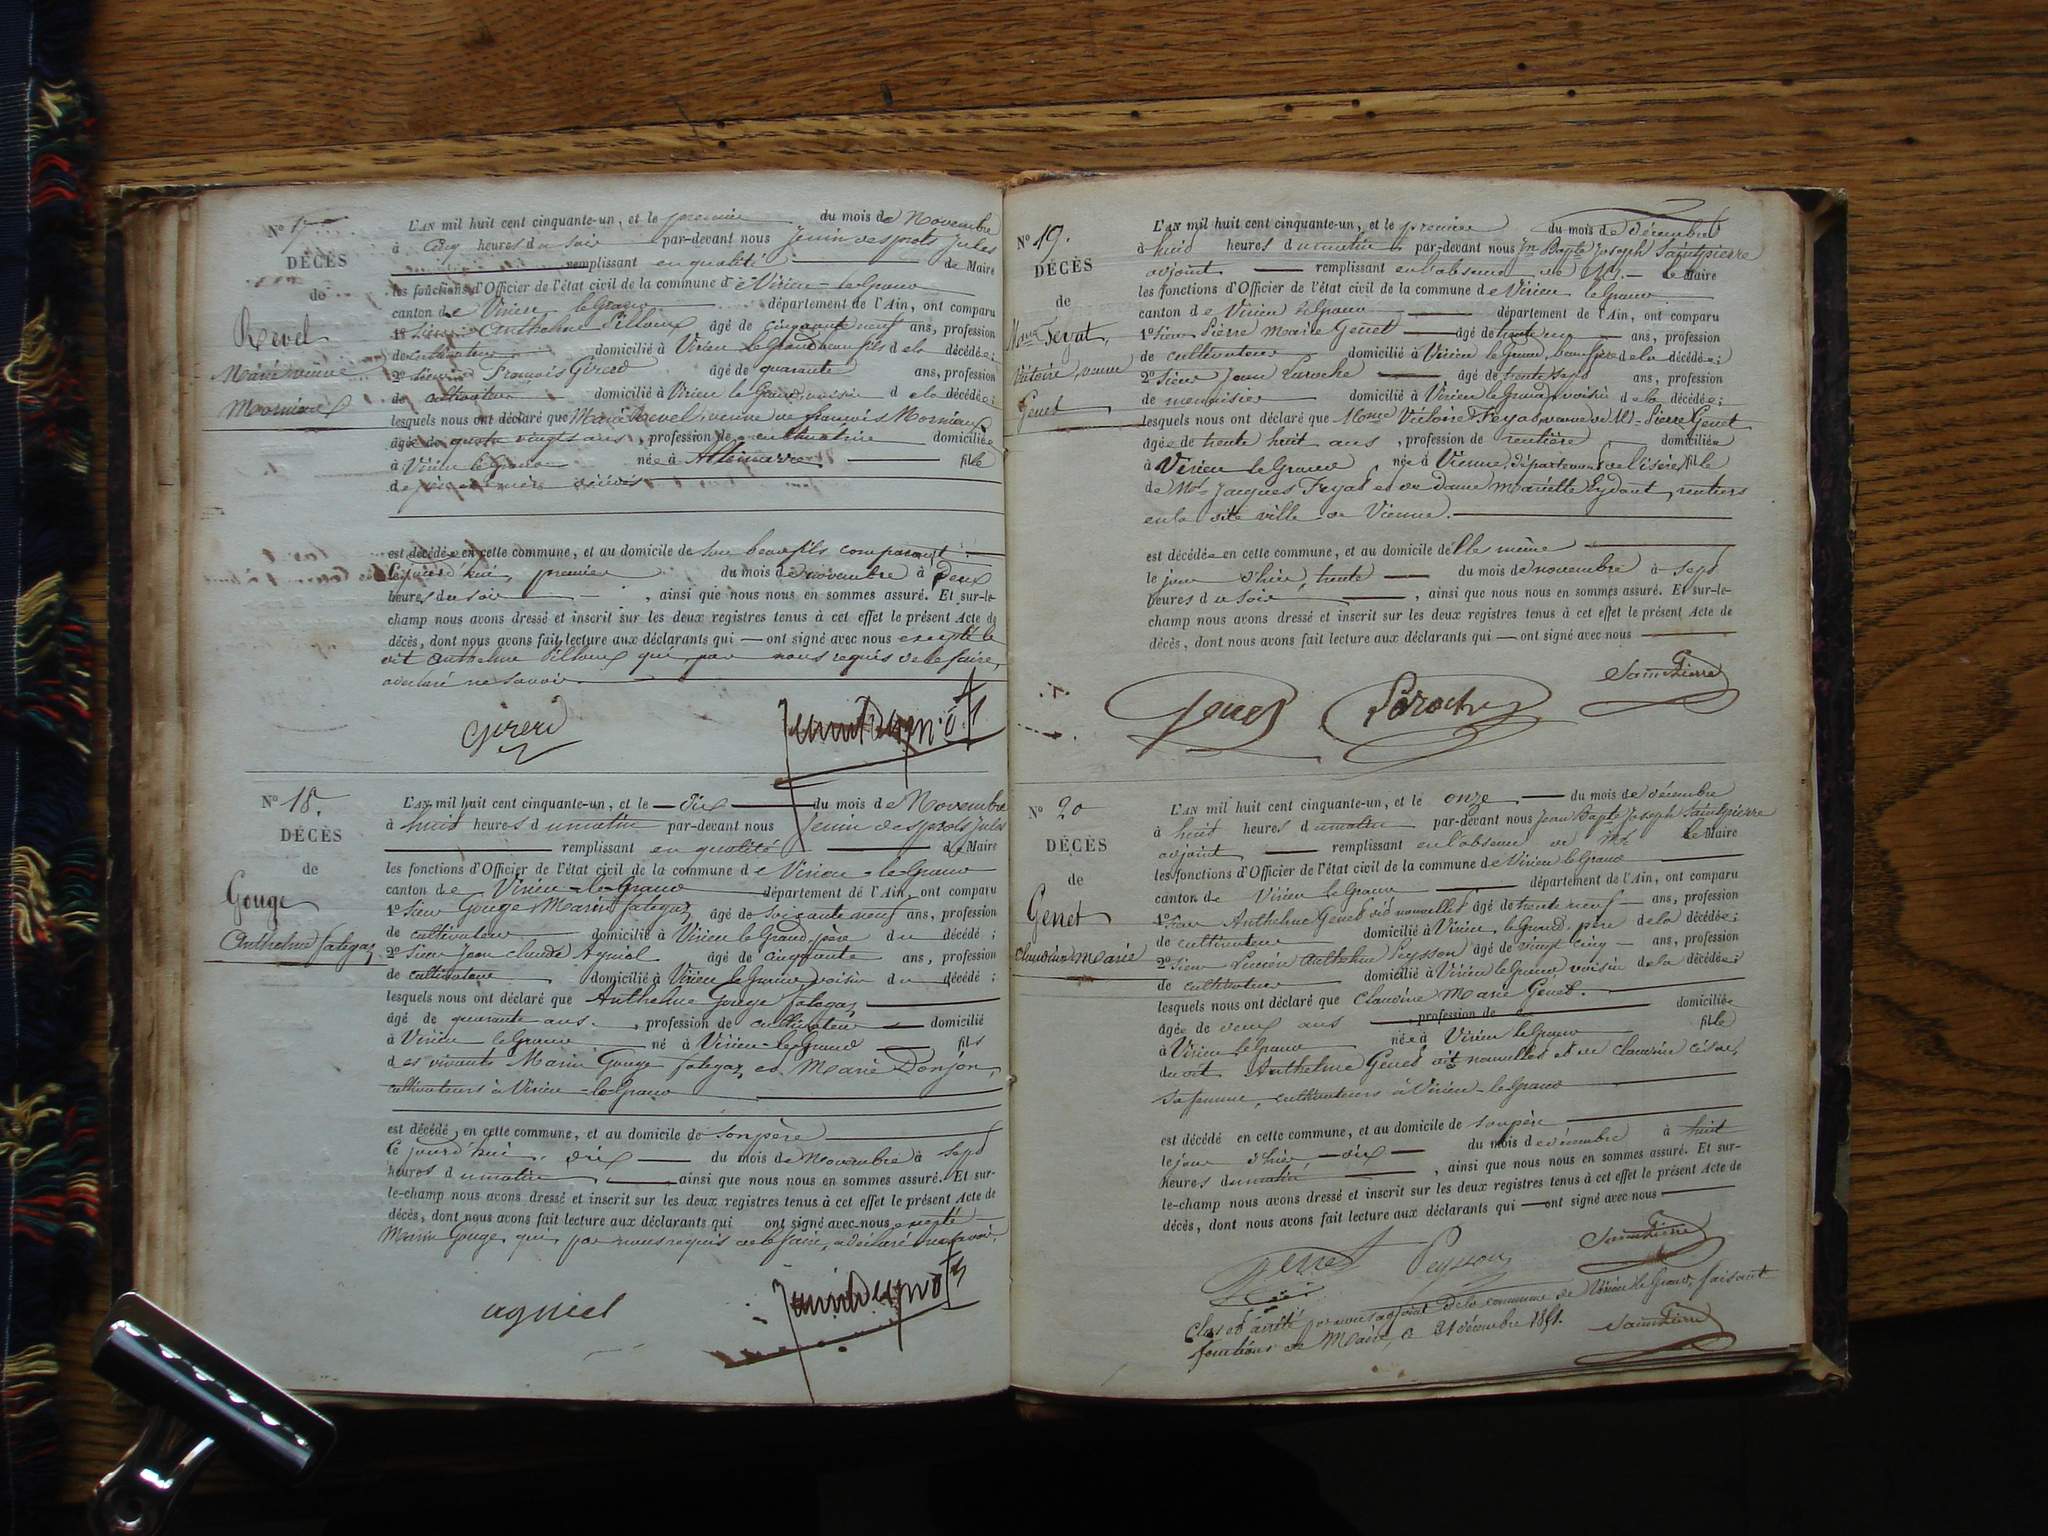 N° 17
DÉCÈS
de
Revel
Marie veuve
Morniaux
L'AN mil huit cent cinquante-un, et le premier du mois de Novembre
à cinq heures du soir par-devant nous Jenin desprots Jules
remplissant en qualité de Maire
les fonctions d'Officier de l'état civil de la commune de Virieu-le-Grand
canton de Virieu le Grand département de l'Ain, ont comparu
1° Sieur Anthelme Pilloux âgé de cinquante neuf ans, profession
de cultivateur domicilié à Virieu le Grand beau fils de la décédée;
2° Sieur François Girerd âgé de quarante ans, profession
de cultivateur domicilié à Virieu le Grand, voisin de la décédée;
lesquels nous ont déclaré que Marie Revel, veuve de François Morniaux
âgée de quatre vingts ans, profession de cultivatrice domiciliée
à Virieu le Grand née à fille
de père et mère décédés
est décédée en cette commune, et au domicile de son beau fils comparant
Ce jourd'hui, premier du mois de novembre à deux
heures du soir, ainsi que nous nous en sommes assuré. Et sur-le-
champ nous avons dressé et inscrit sur les deux registres tenus à cet effet le présent Acte de
décès, dont nous avons fait lecture aux déclarants qui ont signé avec nous excepté le
dit Anthelme Pilloux qui, par nous requis de le faire,
a déclaré ne savoir.
Girerd
N° 18.
DÉCÈS
de
Gouge
Anthelme falegaz
L'AN mil huit cent cinquante-un, et le dix du mois de Novembre
à huit heures du matin par-devant nous Jenin desprots Jules
remplissant en qualité de Maire
les fonctions d'Officier de l'état civil de la commune de Virieu-le-Grand
canton de Virieu-le-Grand département de l'Ain, ont comparu
1° Sieur Gouge Marin falegaz âgé de soixante neuf ans, profession
de cultivateur domicilié à Virieu le Grand, père du décédé;
2° Sieur Jean Claude Agniel âgé de cinquante ans, profession
de cultivateur domicilié à Virieu le Grand, voisin du décédé;
lesquels nous ont déclaré que Anthelme Gouge falegaz
âgé de quarante ans, profession de cultivateur domicilié
à Virieu le Grand né à Virieu-le-Grand fils
des vivants Marin Gouge falegaz, et Marie Donjon,
cultivateurs à Virieu-le-Grand
est décédé, en cette commune, et au domicile de son père
Ce jourd'hui, dix du mois de Novembre à sept
heures du matin, ainsi que nous nous en sommes assuré. Et sur-
le-champ nous avons dressé et inscrit sur les deux registres tenus à cet effet le présent Acte de
décès, dont nous avons fait lecture aux déclarants qui ont signé avec nous excepté
Marin Gouge, qui, par nous requis de le faire, a déclaré ne savoir.
agniel
N° 19.
DÉCÈS
de
Feyat,
Victoire, veuve
Genet
L'AN mil huit cent cinquante-un, et le premier du mois de décembre
à huit heures du matin par-devant nous Jn Bapte Joseph Saintpierre
adjoint remplissant en l'absence de Mr. le Maire
les fonctions d'Officier de l'état civil de la commune de Virieu le Grand
canton de Virieu le Grand département de l'Ain, ont comparu
1° Sieur Pierre Marie Genet âgé de trente ans, profession
de cultivateur domicilié à Virieu le Grand, beau frère de la décédée;
2° Sieur Jean Laroche âgé de trente sept ans, profession
de menuisier domicilié à Virieu le Grand, voisin de la décédée;
lesquels nous ont déclaré que Mme Victoire Feyat, veuve de Mr Pierre Genet
âgée de trente huit ans, profession de rentière domiciliée
à Virieu le Grand née à Vienne, département de l'isère, fille
de Mr Jacques Feyat et de Dame Mariette Eydant, rentiers
en la dite ville de Vienne.
est décédée en cette commune, et au domicile d'Elle même
le jour d'hier, trente du mois de novembre à sept
heures du soir, ainsi que nous nous en sommes assuré. Et sur-le-
champ nous avons dressé et inscrit sur les deux registres tenus à cet effet le présent Acte de
décès, dont nous avons fait lecture aux déclarants qui ont signé avec nous
Saintpierre
Genet Laroche
N° 20
DÉCÈS
de
Genet
Claudine Marie
L'AN mil huit cent cinquante-un, et le onze du mois de décembre
à huit heures du matin par-devant nous Jean Bapte Joseph Saintpierre
adjoint remplissant en l'absence de Mr. le Maire
les fonctions d'Officier de l'état civil de la commune de Virieu le Grand
canton de Virieu le Grand département de l'Ain, ont comparu
1° Sieur Anthelme Genet dit nouvellet âgé de trente neuf ans, profession
de cultivateur domicilié à Virieu le Grand, père de la décédée;
2° Sieur Lucien Anthelme Peysson âgé de vingt cinq ans, profession
de cultivateur domicilié à Virieu le Grand voisin de la décédée;
lesquels nous ont déclaré que Claudine Marie Genet.
âgée de deux ans, profession de domiciliée
à Virieu le Grand née à Virieu le Grand fille
du dit Anthelme Genet dit nouvellet et de Claudine César,
sa femme, cultivateurs à Virieu-le-Grand
est décédé en cette commune, et au domicile de son père
le jour d'hier, dix du mois de décembre à huit
heures du matin, ainsi que nous nous en sommes assuré. Et sur-
le-champ nous avons dressé et inscrit sur les deux registres tenus à cet effet le présent Acte de
décès, dont nous avons fait lecture aux déclarants qui ont signé avec nous
Genet Peysson Saintpierre
Clos et arrêté par nous adjoint de la commune de Virieu le Grand, faisant
fonctions de Maire, le 31 décembre 1851.
Saintpierre